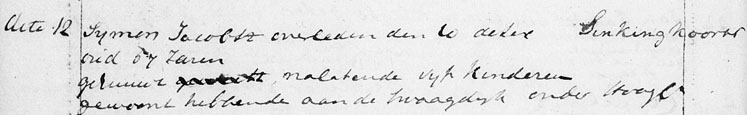 Acte 12 Symon Jacobsz overleden den 10 dezer Zinkinghoorn
oud 67 Jaren
gehuuwt, nalatende vijf Kinderen
gewoont hebbende aan de Zwaagdyk onder Hoogk